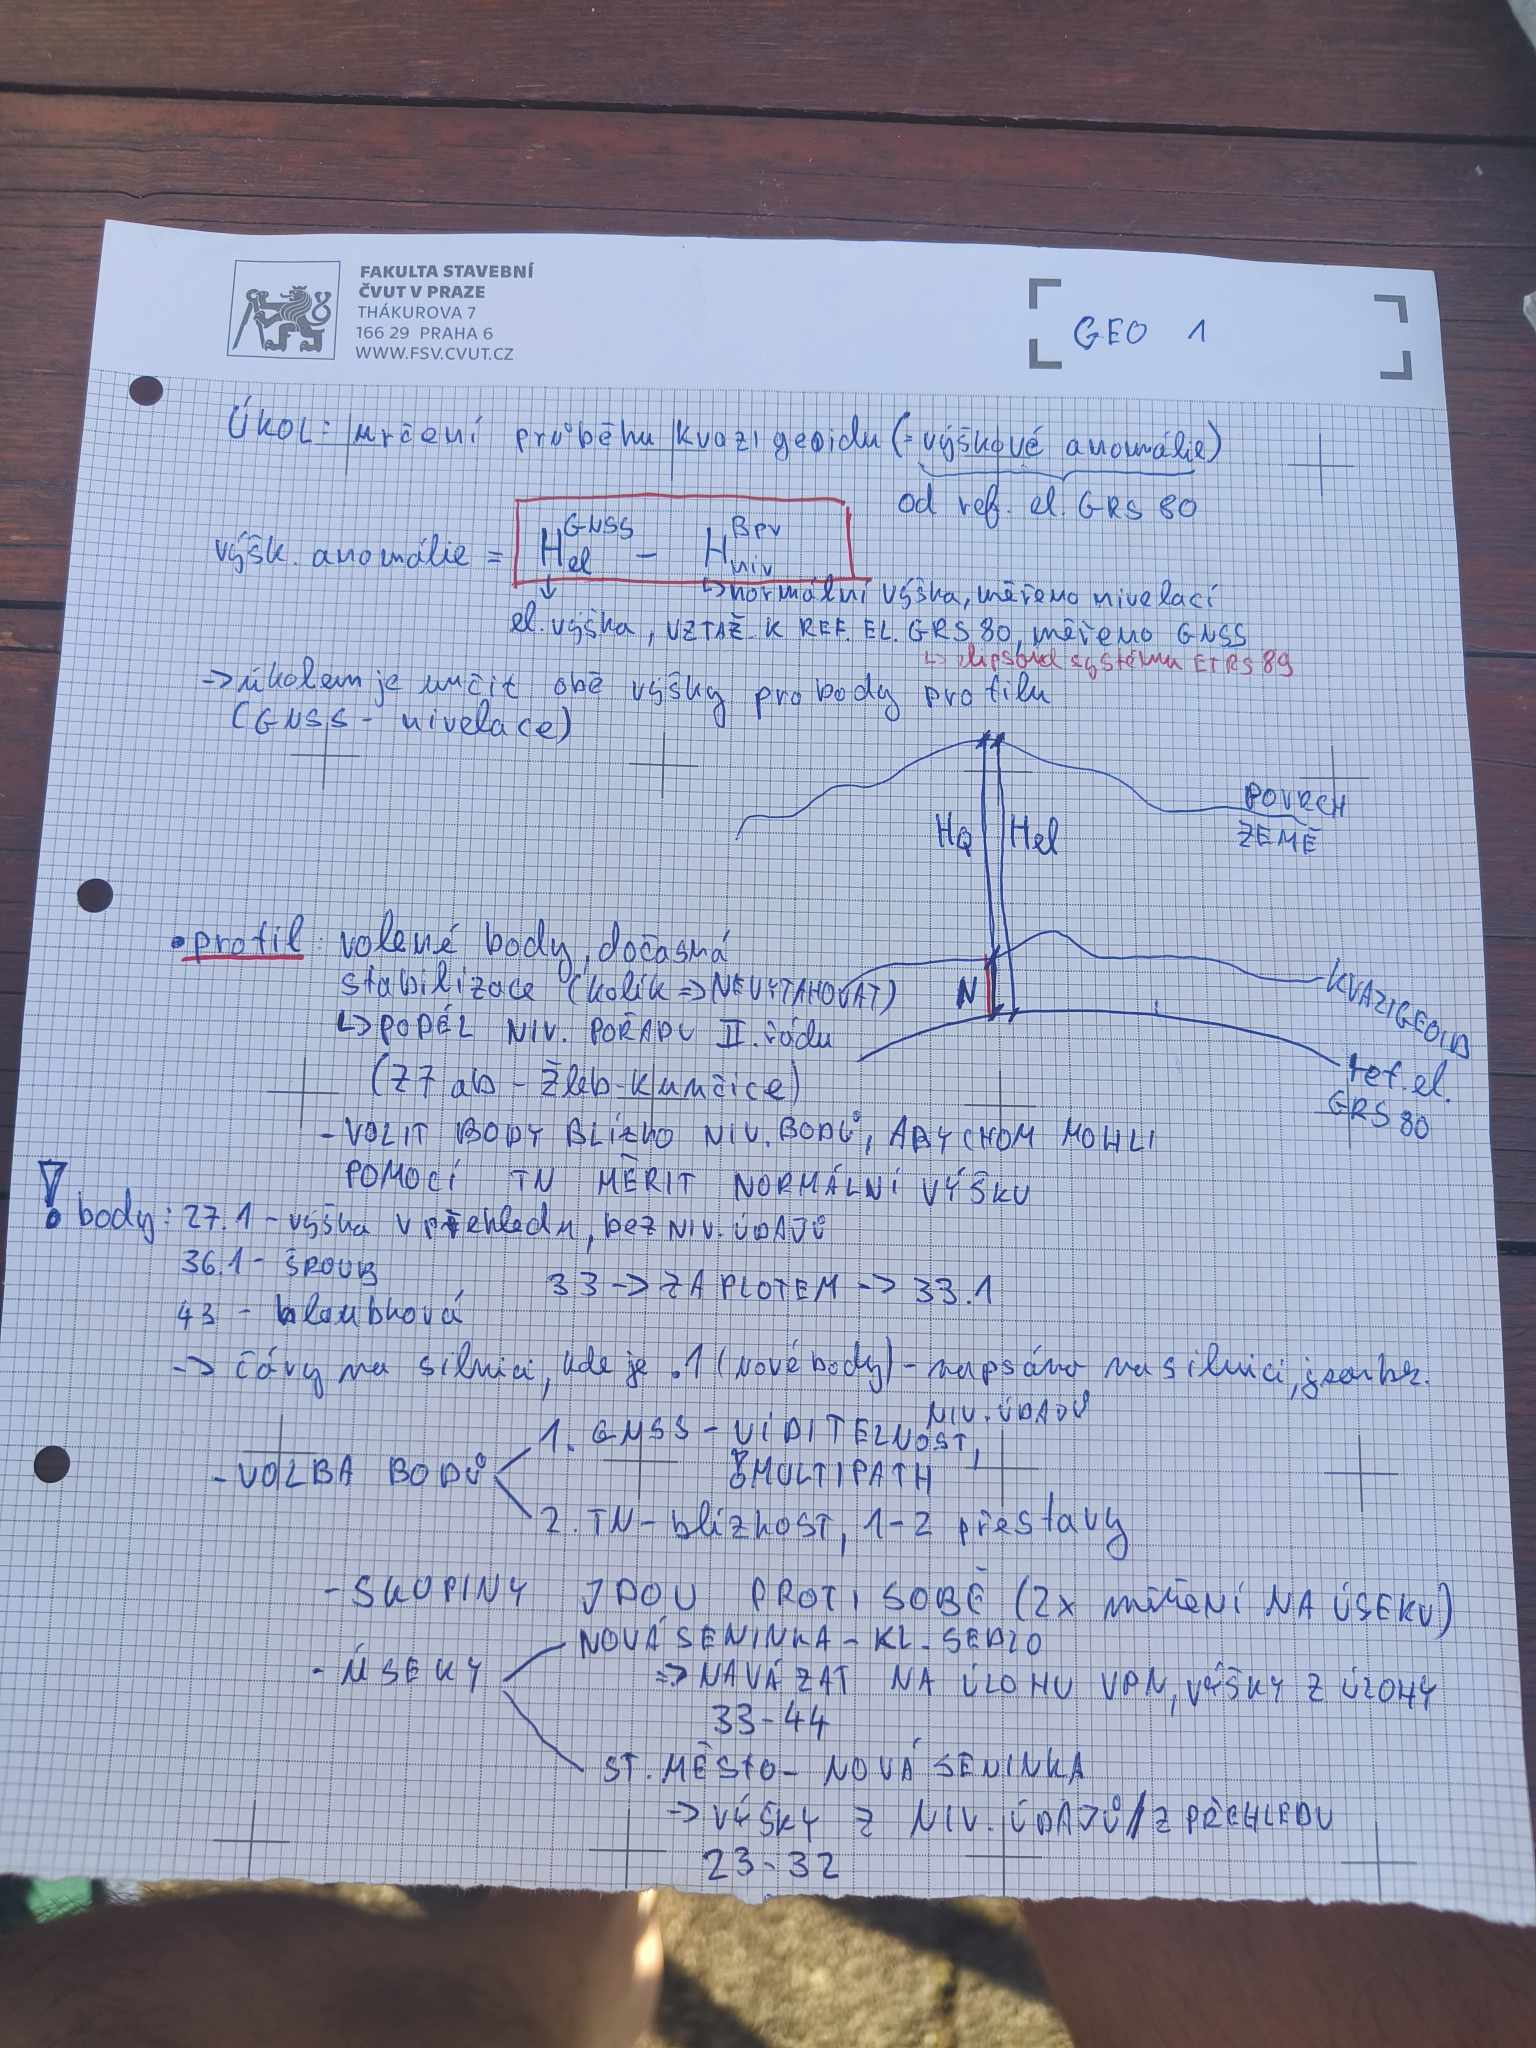 FAKULTA STAVEBNÍ
ČVUT V PRAZE
THÁKUROVA 7
166 29 PRAHA 6
WWW.FSV.CVUT.CZ
GEO 1
ÚKOL: určení průběhu kvazigeoidu (= výškové anomálie)
od ref. el. GRS 80
výšk. anomálie = Hel GNSS − Hniv Bpv
↳ normální výška, měřeno nivelací
el. výška, VZTAŽ. K REF. EL. GRS 80, měřeno GNSS
↳ elipsoid systému ETRS 89
→ úkolem je určit obě výšky pro body profilu
(GNSS - nivelace)
POVRCH
ZEMĚ
HQ Hel
• profil: volené body, dočasná
stabilizace (kolík => NEVYTAHOVAT)
N
KVAZIGEOID
↳ PODÉL NIV. POŘADU II. řádu
(Z7 ab - Žleb-Kunčice)
ref. el.
GRS 80
- VOLIT BODY BLÍZKO NIV. BODŮ, ABYCHOM MOHLI
POMOCÍ TN MĚŘIT NORMÁLNÍ VÝŠKU
! body: 27.1 - výška v přehledu, bez NIV. ÚDAJŮ
36.1 - ŠROUB
33 -> ZA PLOTEM -> 33.1
43 - hloubková
-> čáry na silnici, kde je .1 (nové body) - napsáno na silnici, jsou bez.
NIV. ÚDAJŮ
- VOLBA BODŮ
1. GNSS - VIDITELNOST,
MULTIPATH
2. TN - blízkost, 1-2 přestavy
- SKUPINY JDOU PROTI SOBĚ (2x měření NA ÚSEKU)
- ÚSEKY
NOVÁ SENINKA - KL. SEDLO
=> NAVÁZAT NA ÚLOHU VPN, VÝŠKY Z ÚLOHY
33-44
ST. MĚSTO - NOVÁ SENINKA
-> VÝŠKY Z NIV. ÚDAJŮ / Z PŘEHLEDU
23-32